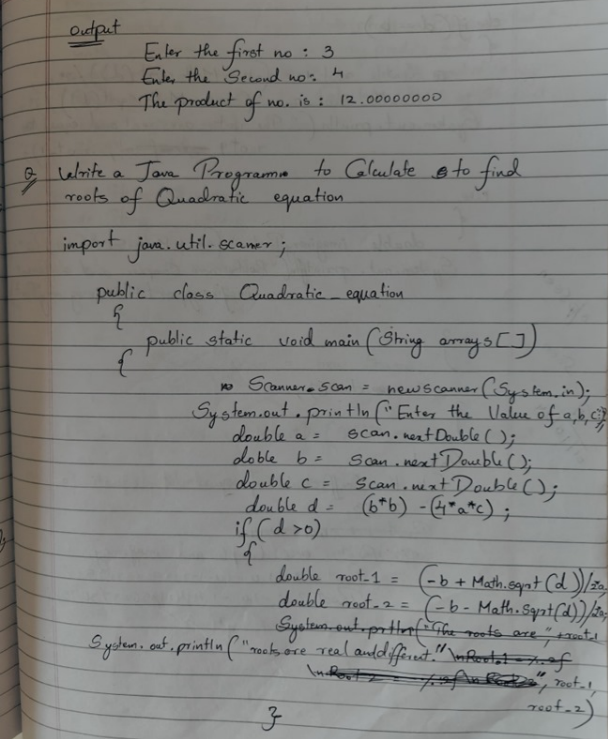 Output
Enter the first no : 3
Enter the Second no: 4
The product of no. is : 12.00000000
Q Write a Java Programm to Calculate to find
roots of Quadratic equation
import java.util.scanner;
public class Quadratic_equation
{
public static void main (String arrays[])
{
Scanner.scan = newscanner(System.in);
System.out.println("Enter the Value of a,b,c:");
double a = scan.nextDouble();
doble b = scan.nextDouble();
double c = scan.nextDouble();
double d = (b*b) - (4*a*c);
if (d >0)
{
double root_1 = (-b + Math.sqrt(d))/2a;
double root_2 = (-b - Math.sqrt(d))/2a;
System.out.println("The roots are" +root_1
System.out.println("roots are real and different." \nRoot_1 = %.of
\nRoot_2 = %.of \n ", root_1,
root_2)
}